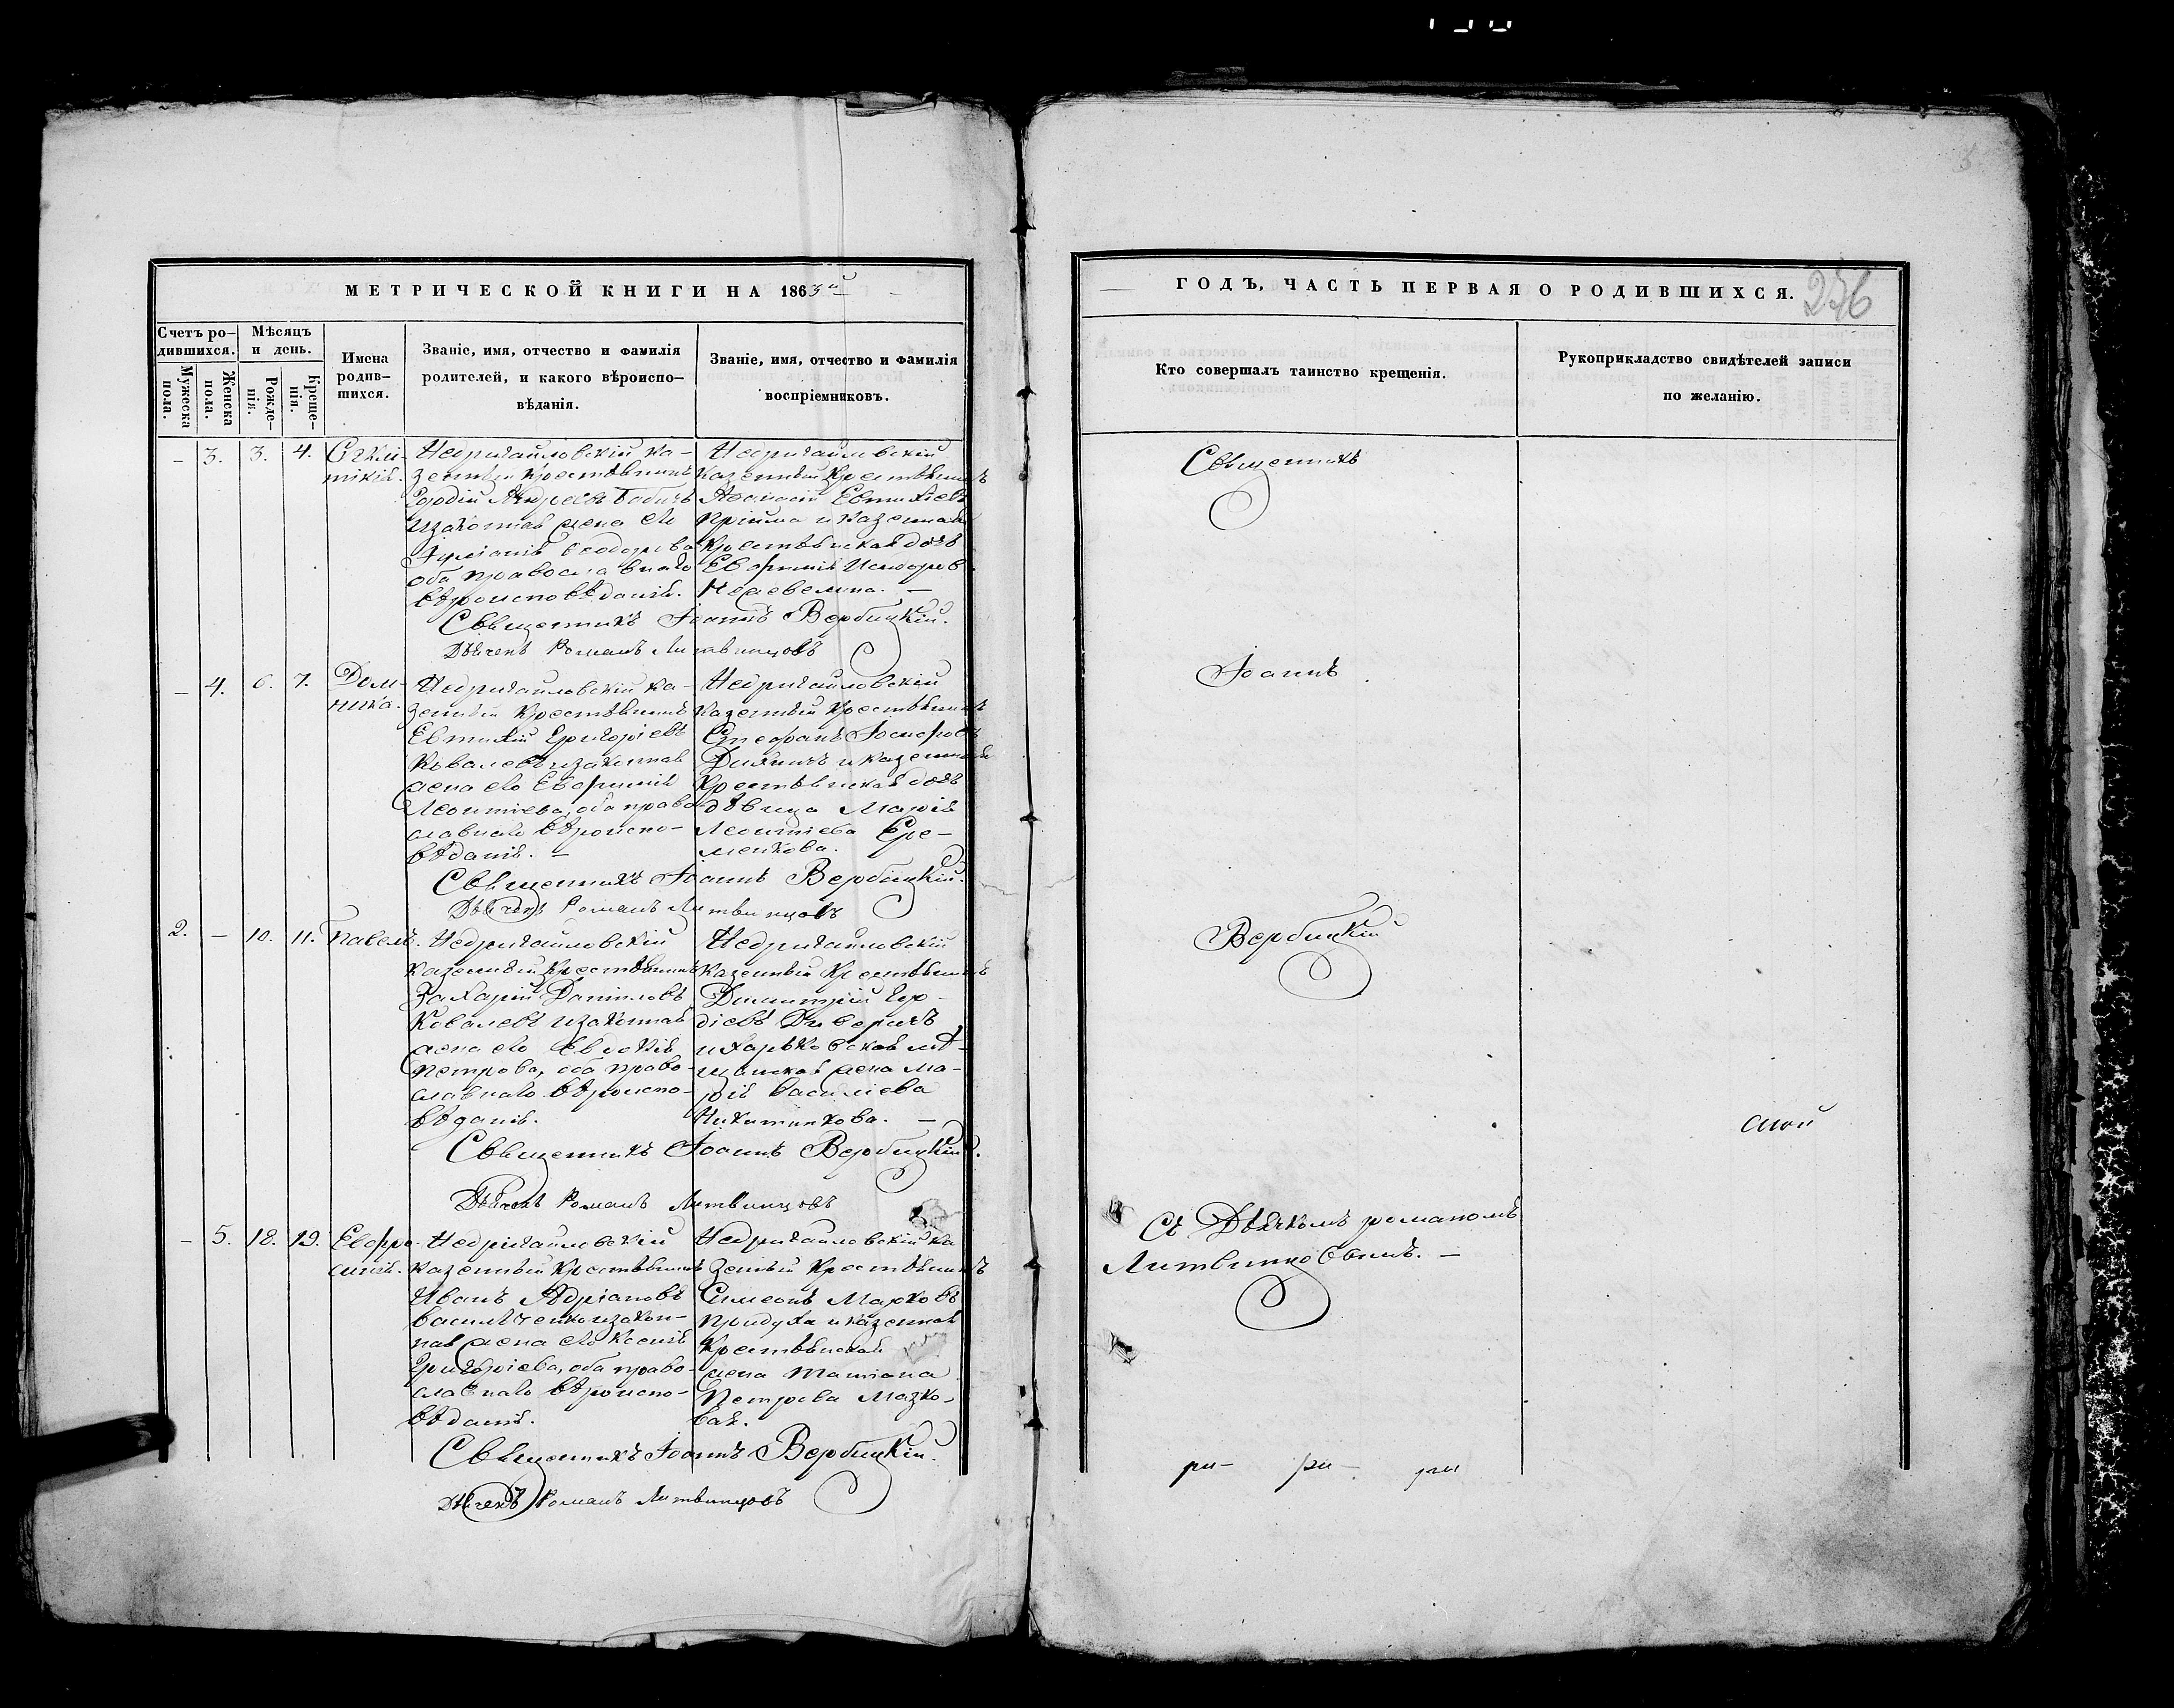 МЕТРИЧЕСКОЙ КНИГИ НА 1863й
Счетъ ро-
дившихся.
Мужеска
пола.
Женска
пола.
Мѣсяцъ
и день.
Рожде-
нія.
Креще-
нія.
Имена
родив-
шихся.
Званіе, имя, отчество и фамилія
родителей, и какого вѣроиспо-
вѣданія.
Званіе, имя, отчество и фамилія
воспріемниковъ.
– 3. 3. 4.
Недригайловскій ка-
зенный крестьянинъ
Гордій Андреевъ Бабичъ
и законная жена его
Іуліанія Ѳеодорова
оба православнаго
вѣроисповѣданія.
Недригайловскій
казенный крестьянинъ
Аѳанасій Евтихіевъ
Прійма и казенная
крестьянская дочь
Евфимія
Священникъ Іоаннъ Вербицкій.
Дьячекъ Романъ Литвинцовъ
– 4. 6. 7. Дом-
ника.
Недригайловскій ка-
зенный крестьянинъ
Евтихій Григоріевъ
Ковалевъ и законная
жена его Евфимія
Леонтіева, оба право-
славнаго вѣроиспо-
вѣданія. –
Недригайловскій
казенный крестьянинъ
Стефанъ Іосифовъ
и казенная
крестьянская дочь
дѣвица Марія
Леонтіева Ере-
менкова.
Священникъ Іоаннъ Вербицкій.
Дьячекъ Романъ Литвинцовъ
2. – 10. 11. Павелъ.
Недригайловскій
казенный крестьянинъ
Захарій Даніиловъ
Ковалевъ и законная
жена его Евдокія
Петрова, оба право-
славнаго вѣроиспо-
вѣданія.
Недригайловскій
казенный крестьянинъ
Димитрій Гор-
діевъ
и харьковская мѣ-
щанская жена Ма-
рія Василіева
Никитинкова. –
Священникъ Іоаннъ Вербицкій.
Дьячекъ Романъ Литвинцовъ
– 5. 18. 19. Евфро-
синія.
Недригайловскій
казенный крестьянинъ
Иванъ Адріановъ
Василѣченко и закон-
ная жена его Ксенія
Григоріева, оба право-
славнаго вѣроиспо-
вѣданія.
Недригайловскій ка-
зенный крестьянинъ
Симеонъ Марковъ
Придуха и казенная
крестьянская
жена Татіана
Петрова Мазко-
вая.
Священникъ Іоаннъ Вербицкій.
Дьячекъ Романъ Литвинцовъ
ГОДЪ, ЧАСТЬ ПЕРВАЯ О РОДИВШИХСЯ.
Кто совершалъ таинство крещенія.
Рукоприкладство свидѣтелей записи
по желанію.
Священникъ
Іоаннъ
Вербицкій
Съ Дьячкомъ Романомъ
Литвинцовымъ. –